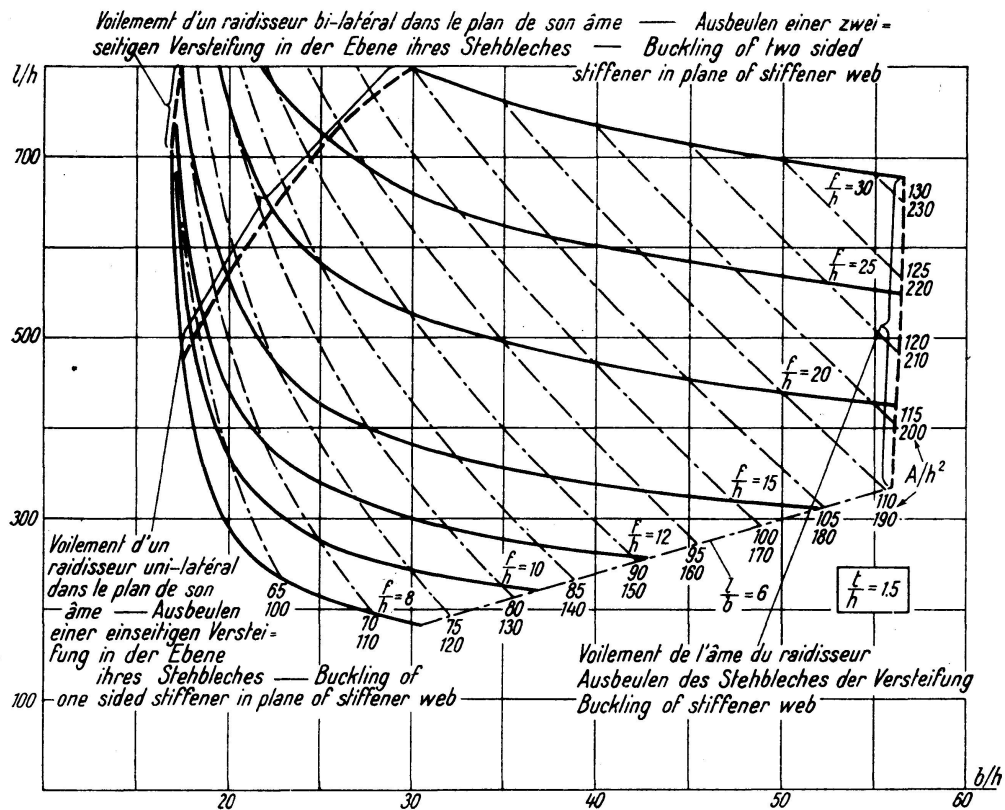 Voilememt d'un raidisseur bi-latéral dans le plan de son âme — Ausbeulen einer zwei=
seitigen Versteifung in der Ebene ihres Stehbleches — Buckling of two sided
stiffener in plane of stiffener web
l/h
700
500
300
100
f/h = 30
130
230
f/h = 25
125
220
120
210
f/h = 20
115
200
A/h²
f/h = 15
110
190
105
180
f/h = 12
100
170
95
160
90
150
f/h = 10
85
140
80
130
f/h = 8
75
120
70
110
65
100
l/b = 6
t/h = 1.5
Voilement d'un
raidisseur uni-latéral
dans le plan de son
âme — Ausbeulen
einer einseitigen Verstei=
fung in der Ebene
ihres Stehbleches — Buckling of
one sided stiffener in plane of stiffener web
Voilement de l'âme du raidisseur
Ausbeulen des Stehbleches der Versteifung
Buckling of stiffener web
20
30
40
50
60
b/h